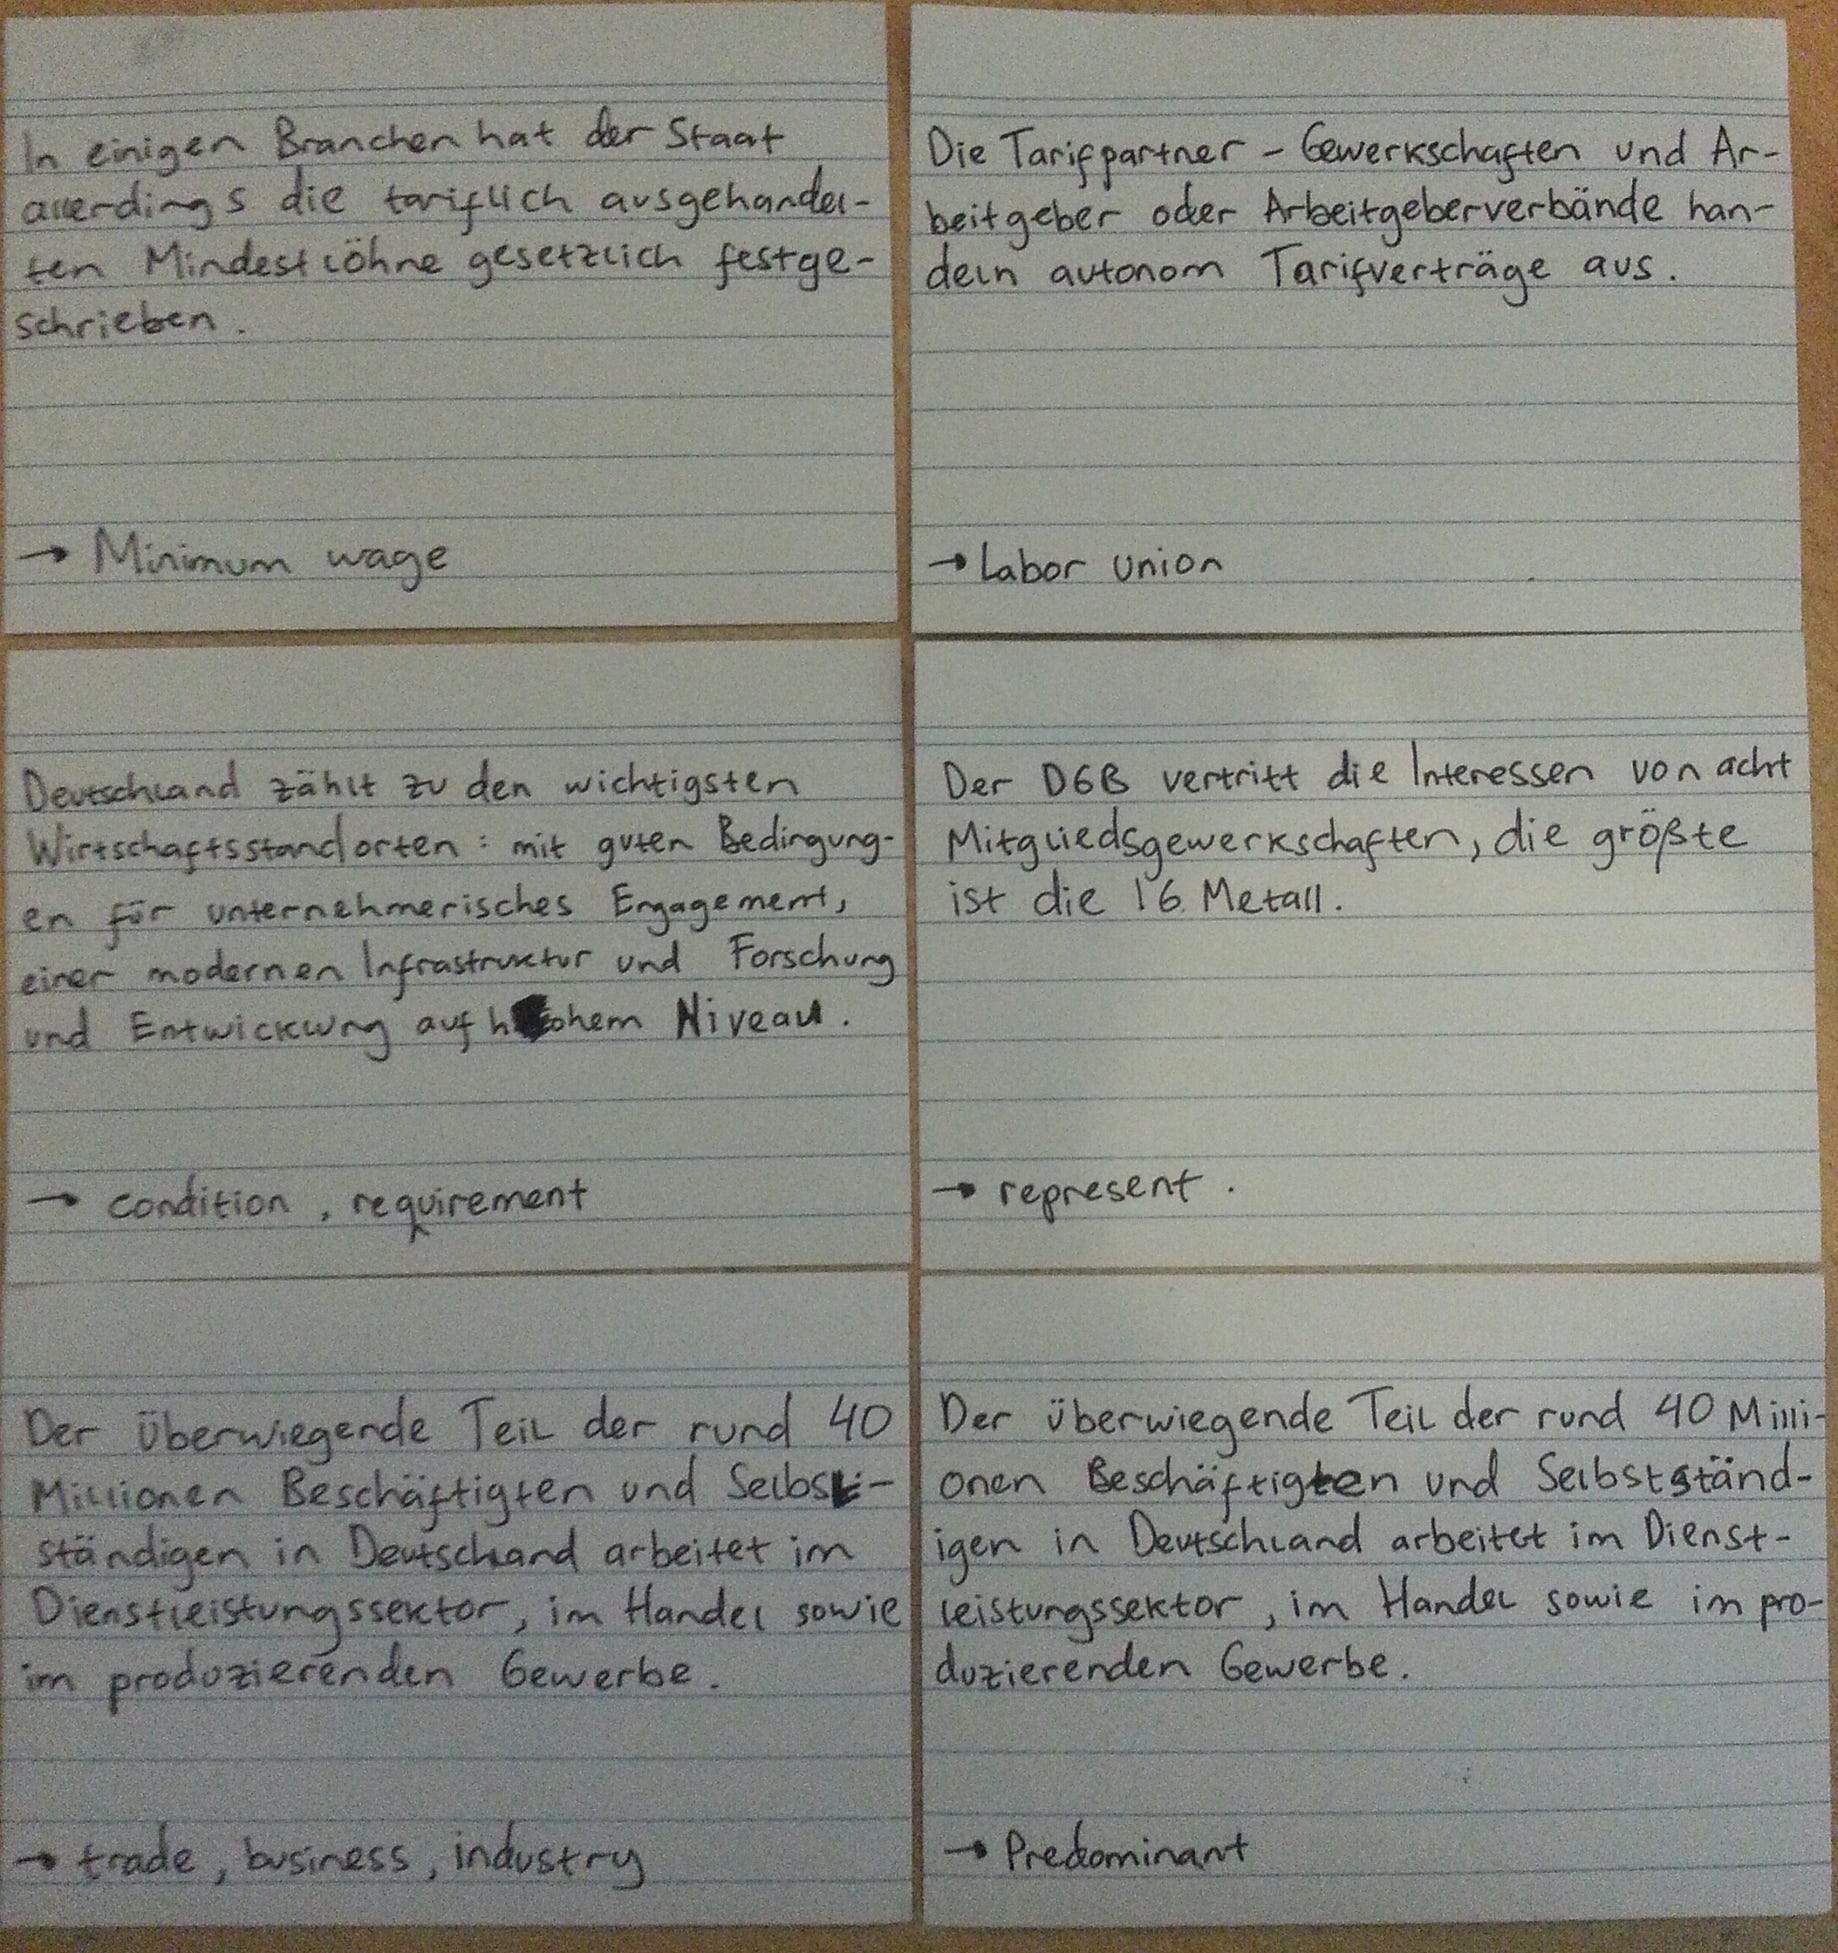 In einigen Branchen hat der Staat
allerdings die tariflich ausgehandel-
ten Mindestlöhne gesetzlich festge-
schrieben.
→ Minimum wage
Die Tarifpartner – Gewerkschaften und Ar-
beitgeber oder Arbeitgeberverbände han-
deln autonom Tarifverträge aus.
→ Labor union
Deutschland zählt zu den wichtigsten
Wirtschaftsstandorten: mit guten Bedingung-
en für unternehmerisches Engagement,
einer modernen Infrastruktur und Forschung
und Entwicklung auf hohem Niveau.
→ condition, requirement
Der DGB vertritt die Interessen von acht
Mitgliedsgewerkschaften, die größte
ist die IG Metall.
→ represent.
Der überwiegende Teil der rund 40
Millionen Beschäftigten und Selbst-
ständigen in Deutschland arbeitet im
Dienstleistungssektor, im Handel sowie
im produzierenden Gewerbe.
→ trade, business, industry
Der überwiegende Teil der rund 40 Milli-
onen Beschäftigten und Selbstständ-
igen in Deutschland arbeitet im Dienst-
leistungssektor, im Handel sowie im pro-
duzierenden Gewerbe.
→ Predominant